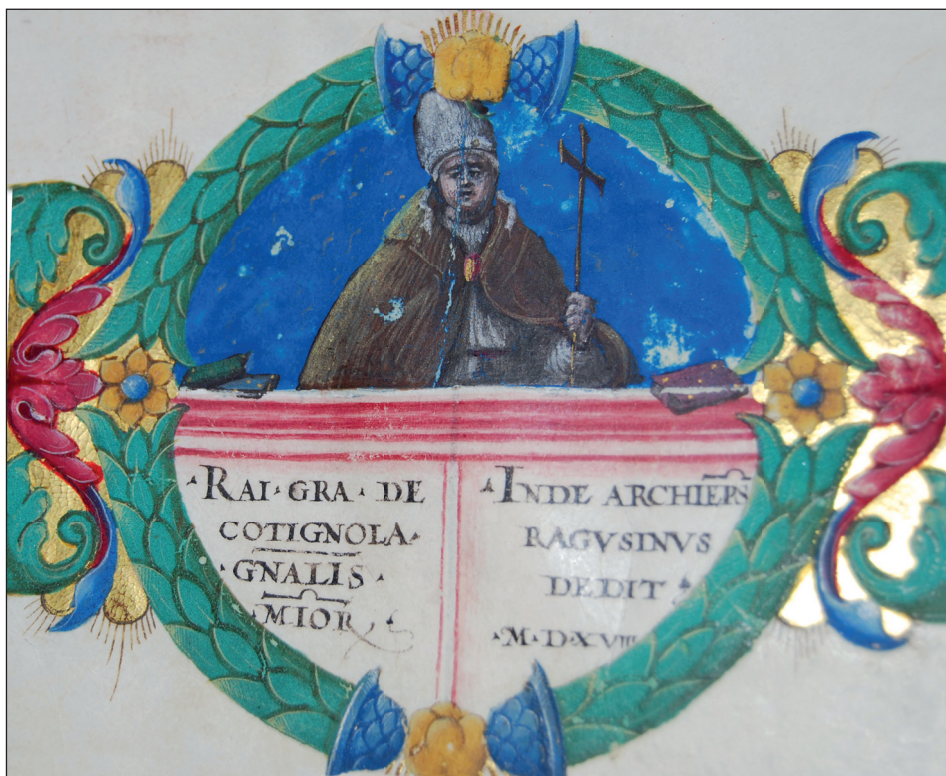 ·RAI·GRA·DE
COTIGNOLA·
·GNALIS·
·MIOR·
·INDE ARCHIEPS
RAGVSINVS
DEDIT·
·M·D·XVIII